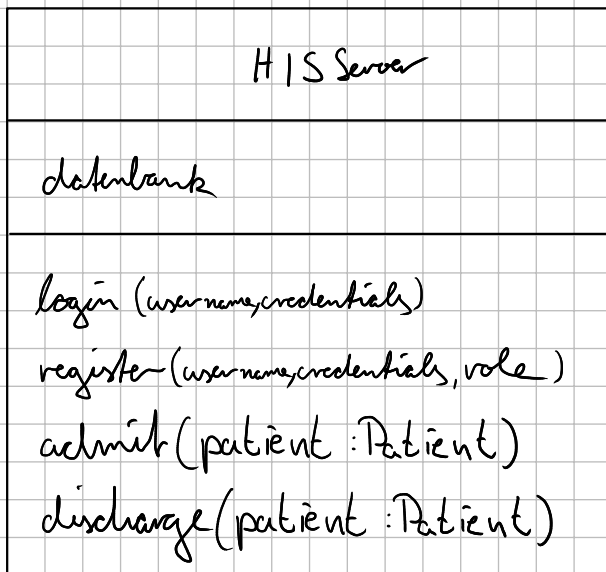 HIS Server
datenbank
login (username,credentials)
register(username,credentials, role)
admit(patient :Patient)
discharge(patient :Patient)